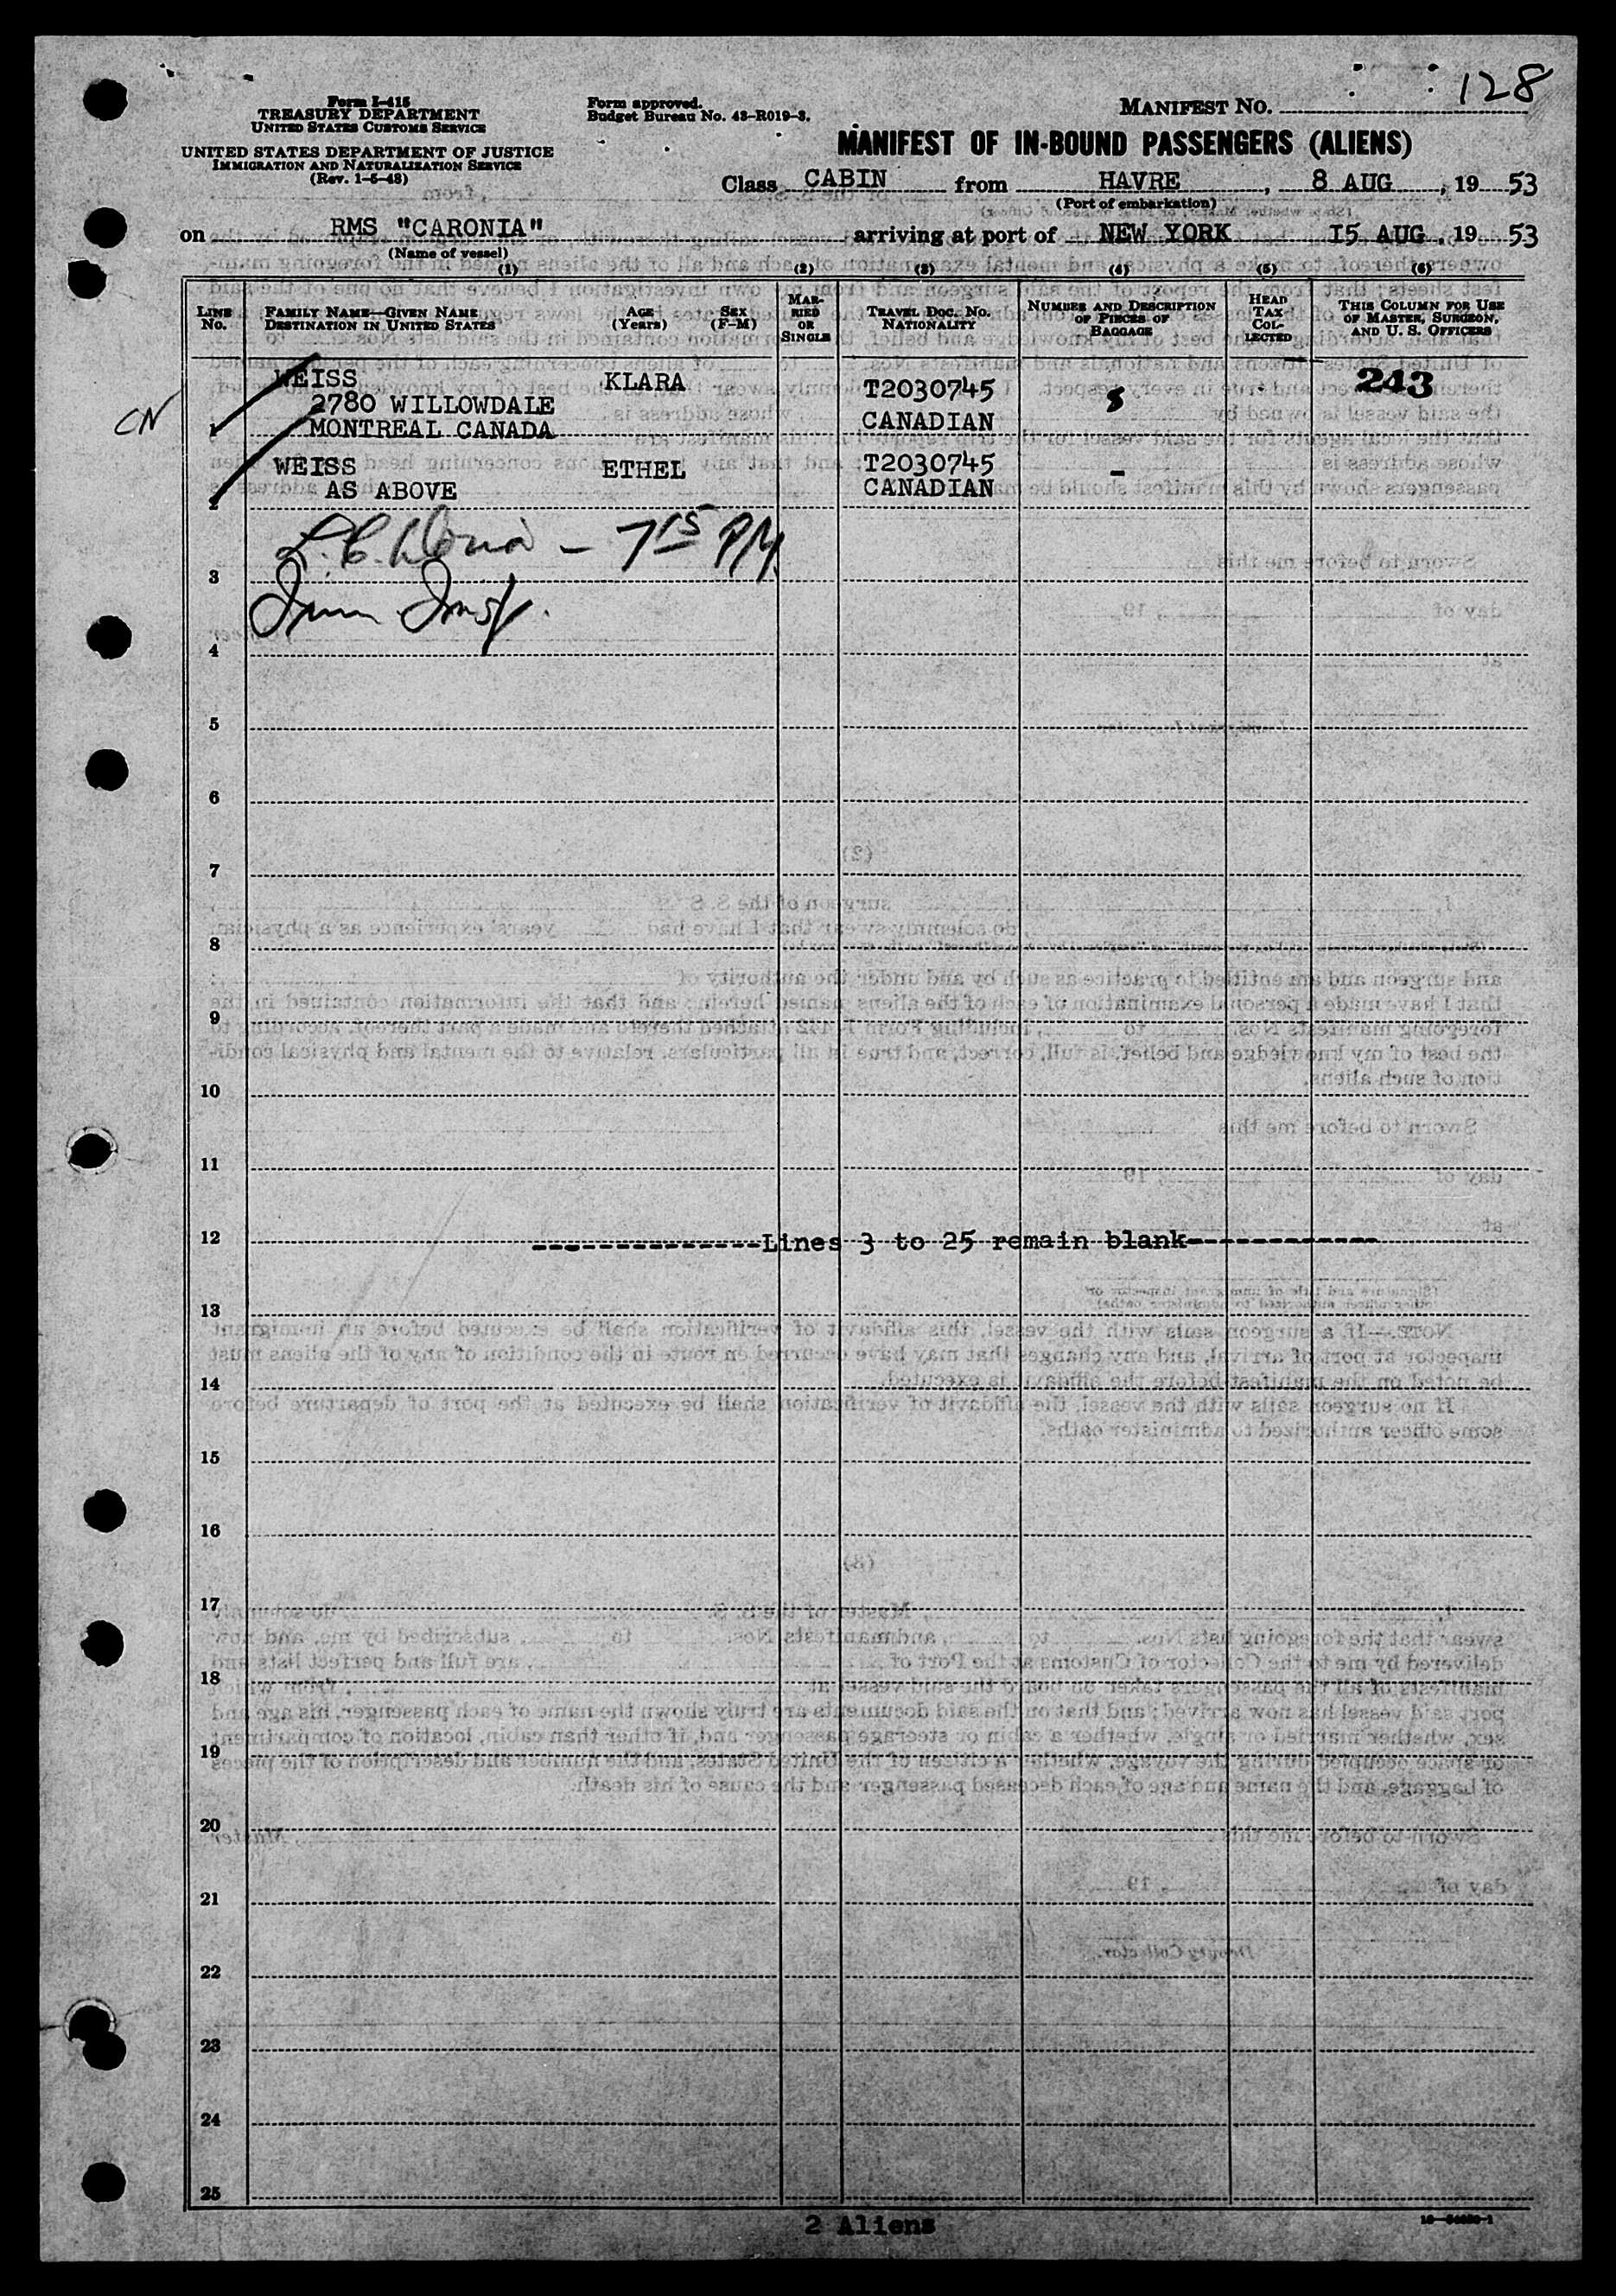 128
Form I-415
TREASURY DEPARTMENT
UNITED STATES CUSTOMS SERVICE
UNITED STATES DEPARTMENT OF JUSTICE
IMMIGRATION AND NATURALIZATION SERVICE
(Rev. 1-5-48)
Form approved.
Budget Bureau No. 43-R019-3.
MANIFEST NO.
MANIFEST OF IN-BOUND PASSENGERS (ALIENS)
Class CABIN from HAVRE, 8 AUG, 19 53
(Port of embarkation)
on RMS "CARONIA" arriving at port of NEW YORK 15 AUG, 19 53
(Name of vessel)
(1) (2) (3) (4) (5) (6)
LINE No. FAMILY NAME—GIVEN NAME DESTINATION IN UNITED STATES AGE (Years) SEX (F-M) MARRIED OR SINGLE TRAVEL DOC. No. NATIONALITY NUMBER AND DESCRIPTION OF PIECES OF BAGGAGE HEAD TAX COLLECTED THIS COLUMN FOR USE OF MASTER, SURGEON, AND U. S. OFFICERS
WEISS KLARA T2030745 8 243
2780 WILLOWDALE
CN 1 MONTREAL CANADA CANADIAN
WEISS ETHEL T2030745 -
2 AS ABOVE CANADIAN
— 7 15 PM
3
Imm Insp.
4
5
6
7
8
9
10
11
12 --------------Lines 3 to 25 remain blank------------
13
14
15
16
17
18
19
20
21
22
23
24
25
2 Aliens